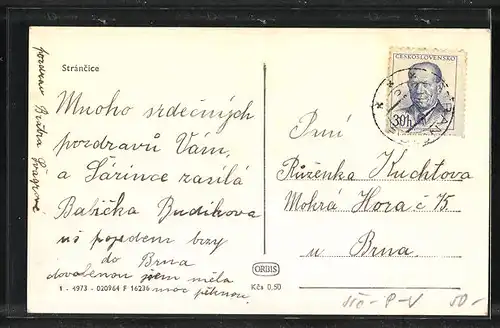 Stránčice
pozdrav Bratra Švagrové
Mnoho srdečných
pozdravů Vám,
a Šárince zasílá
Babička Budíkova
už pojedem brzy
do Brna
dovolenou jsem měla
moc pěknou.
1 - 4973 - 020964 F 16236
ORBIS
Kčs 0,50
ČESKOSLOVENSKO
30h
Paní
Růženka Kuchtova
Mokrá Hora č 75
u Brna.
50-